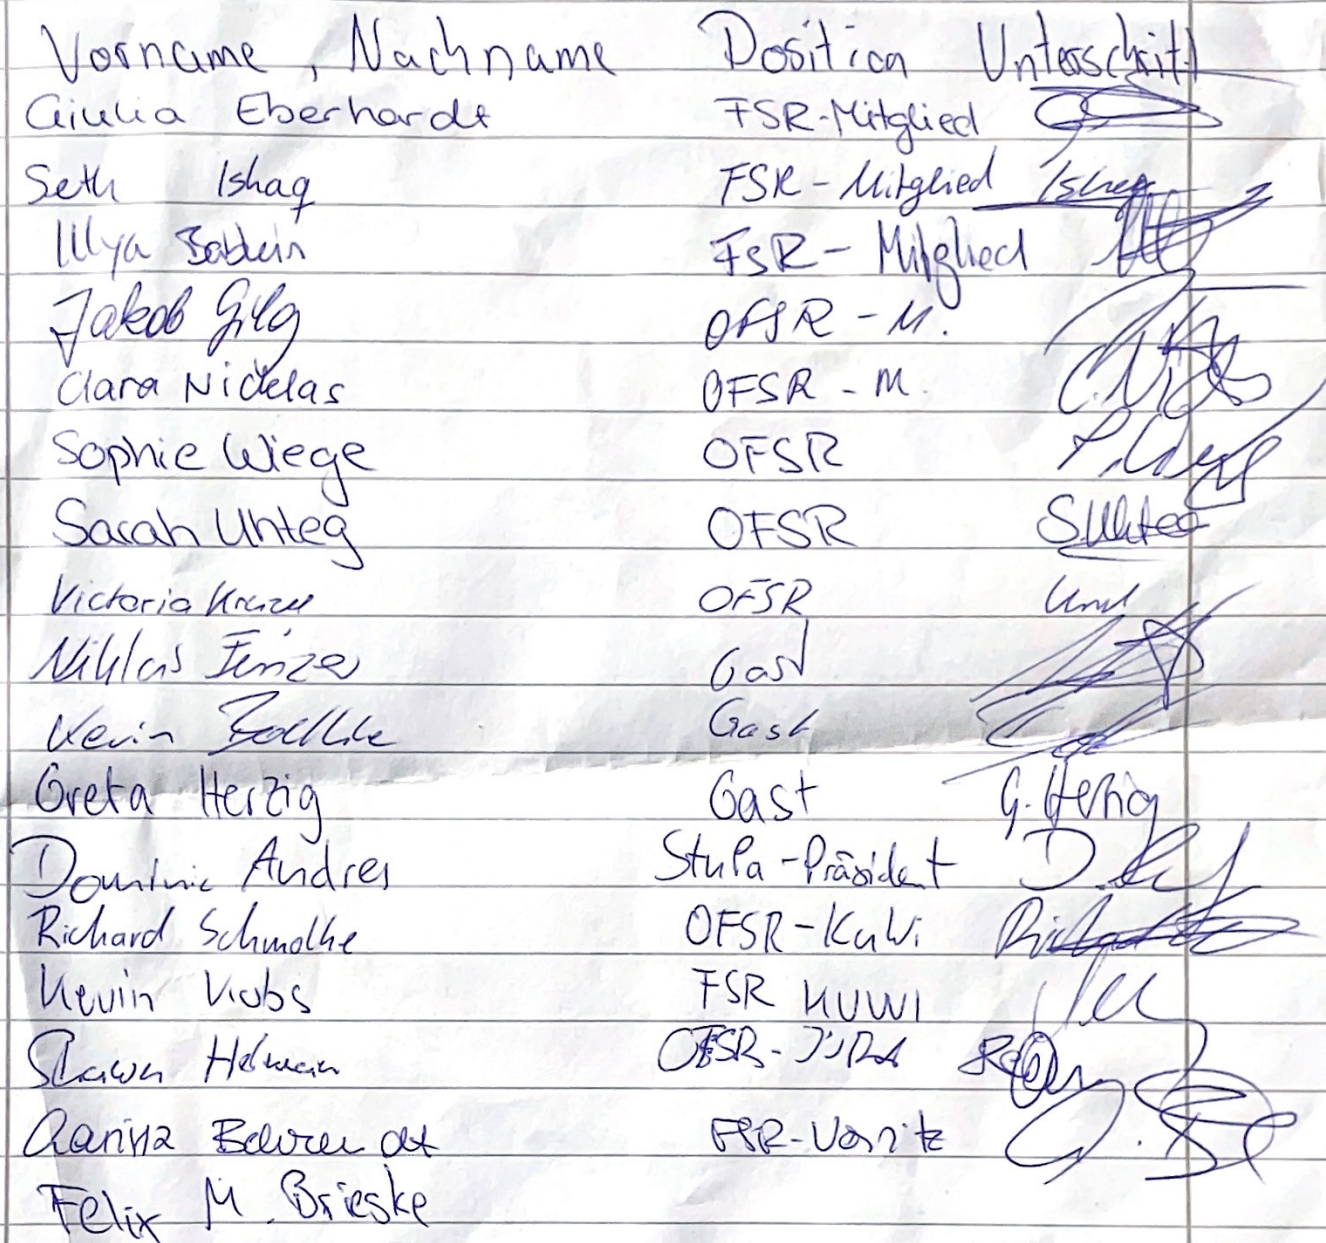 Vorname, Nachname Position Unterschrift
Giulia Eberhardt FSR-Mitglied
Seth Ishaq FSR-Mitglied Ishaq
Illya FSR-Mitglied
Jakob Gilg OFSR-M.
Clara Nicklas OFSR-M.
Sophie Wiege OFSR
Sarah Unteg OFSR
Victoria OFSR
Niklas Gast
Kevin Gast
Greta Herzig Gast G. Herzig
Dominic Andres StuPa-Präsident
Richard Schmolke OFSR-KuWi
Kevin Kobs FSR KUWI
Shawn OFSR-JURA
Carina Behrendt FSR-Vorsitz
Felix M. Brieske